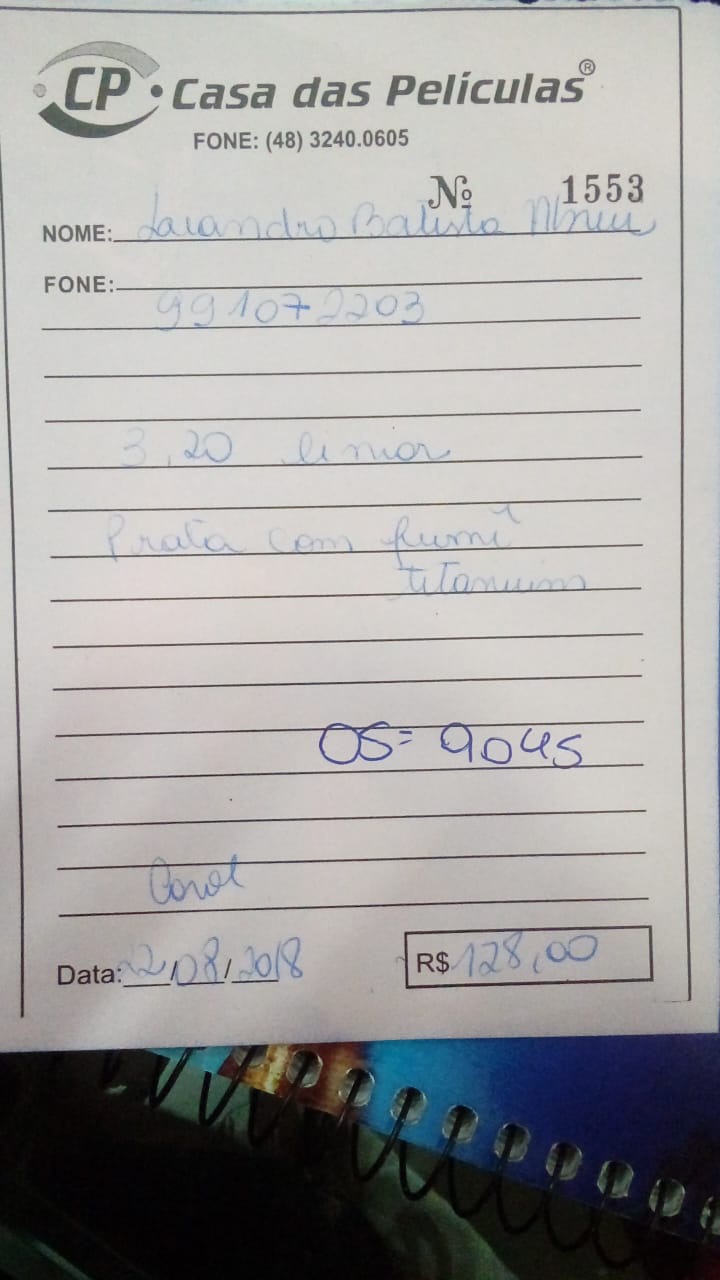 CP Casa das Películas®
FONE: (48) 3240.0605
Nº 1553
NOME: Batista
FONE:
991072203
3,20 linear
Prata com fumê
titanium
OS= 9045
Carol
Data: 2/08/2018 R$ 128,00